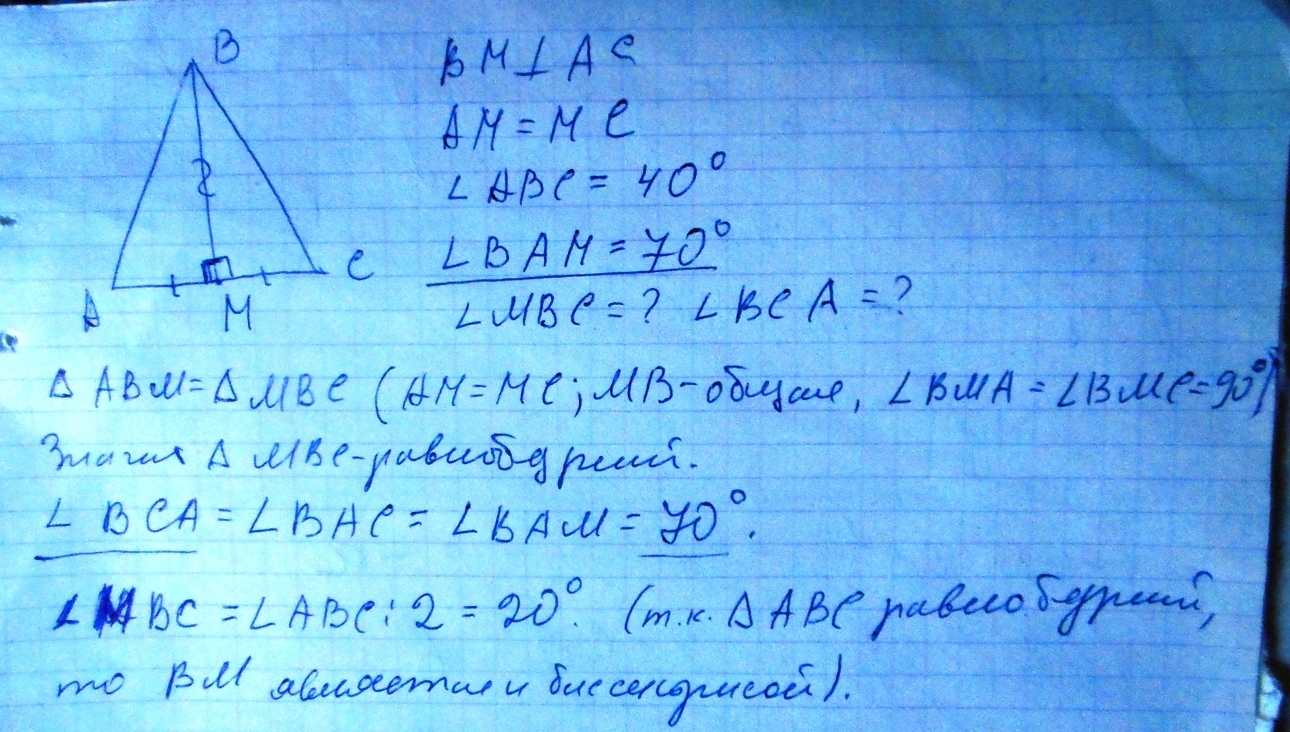 B
A
M
C
BM⊥AC
AM=MC
∠ABC=40°
∠BAM=70°
∠MBC=? ∠BCA=?
Δ ABM=Δ MBC (AM=MC; MB-общая, ∠BMA=∠BMC=90°)
Значит Δ MBC-равнобедрений.
∠BCA=∠BAC=∠BAM=70°.
∠MBC=∠ABC:2=20°. (т.к. Δ ABC равнобедрений,
то BM является и биссектрисой).